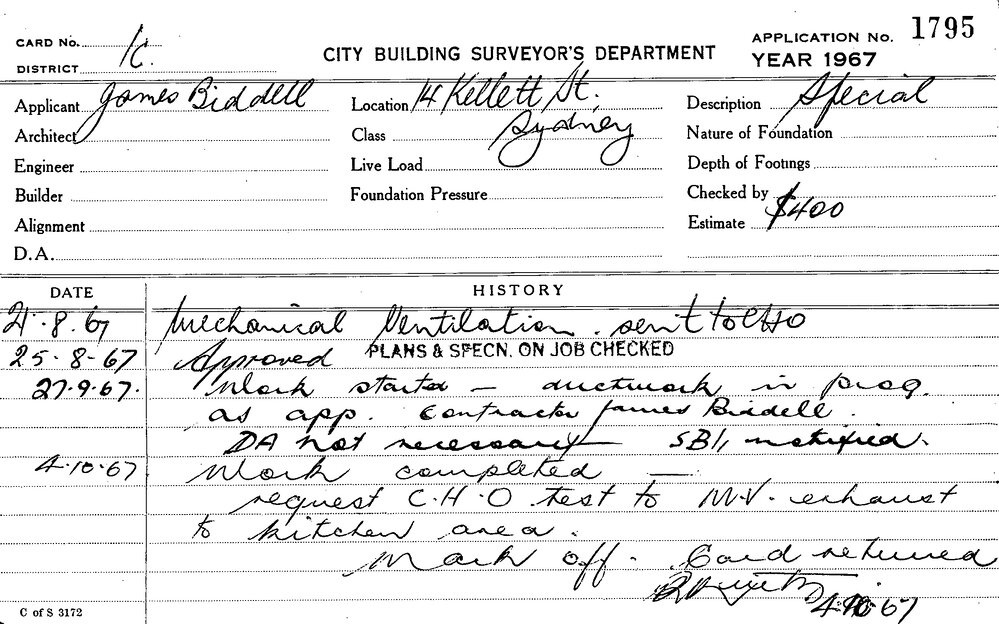 CARD No. 1C.
DISTRICT
CITY BUILDING SURVEYOR'S DEPARTMENT
APPLICATION No. 1795
YEAR 1967
Applicant James Biddell
Location 14 Kellett St.,
Description Special
Architect
Class Sydney
Nature of Foundation
Engineer
Live Load
Depth of Footings
Builder
Foundation Pressure
Checked by
Alignment
Estimate $400
D.A.
DATE HISTORY
21.8.67 Mechanical Ventilation. sent to CHO
25-8-67 Approved PLANS & SPECN. ON JOB CHECKED
27.9.67. Work started — ductwork in prog.
as app. Contractor James Biddell.
DA not necessary — SBI, notified.
4.10.67. Work completed —
request C.H.O test to M.V. exhaust
to kitchen area.
Mark off. Card returned
4.10.67
C of S 3172